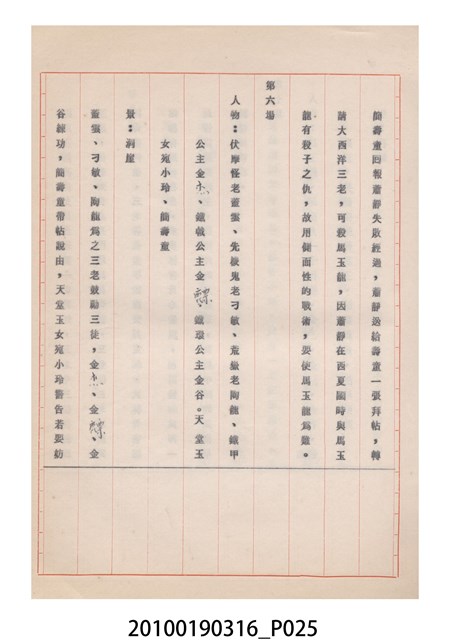 簡壽童回報蕭靜失敗經過，蕭靜遂給壽童一張拜帖，轉
請大西洋三老，可殺馬玉龍，因蕭靜在西夏國時與馬玉
龍有殺子之仇，故用側面性的戰術，要使馬玉龍為難。
第六場
人物：伏摩怪老董雲、先機鬼老刁敏、荒嶽老陶龍、鐵甲
公主金、鐵戟公主金、鐵環公主金谷。天堂玉
女宛小玲、簡壽童
景：洞崖
董雲、刁敏、陶龍為之三老鼓勵三徒，金、金、金
谷練功，簡壽童帶帖說由，天堂玉女宛小玲警告若要妨
20100190316_P025